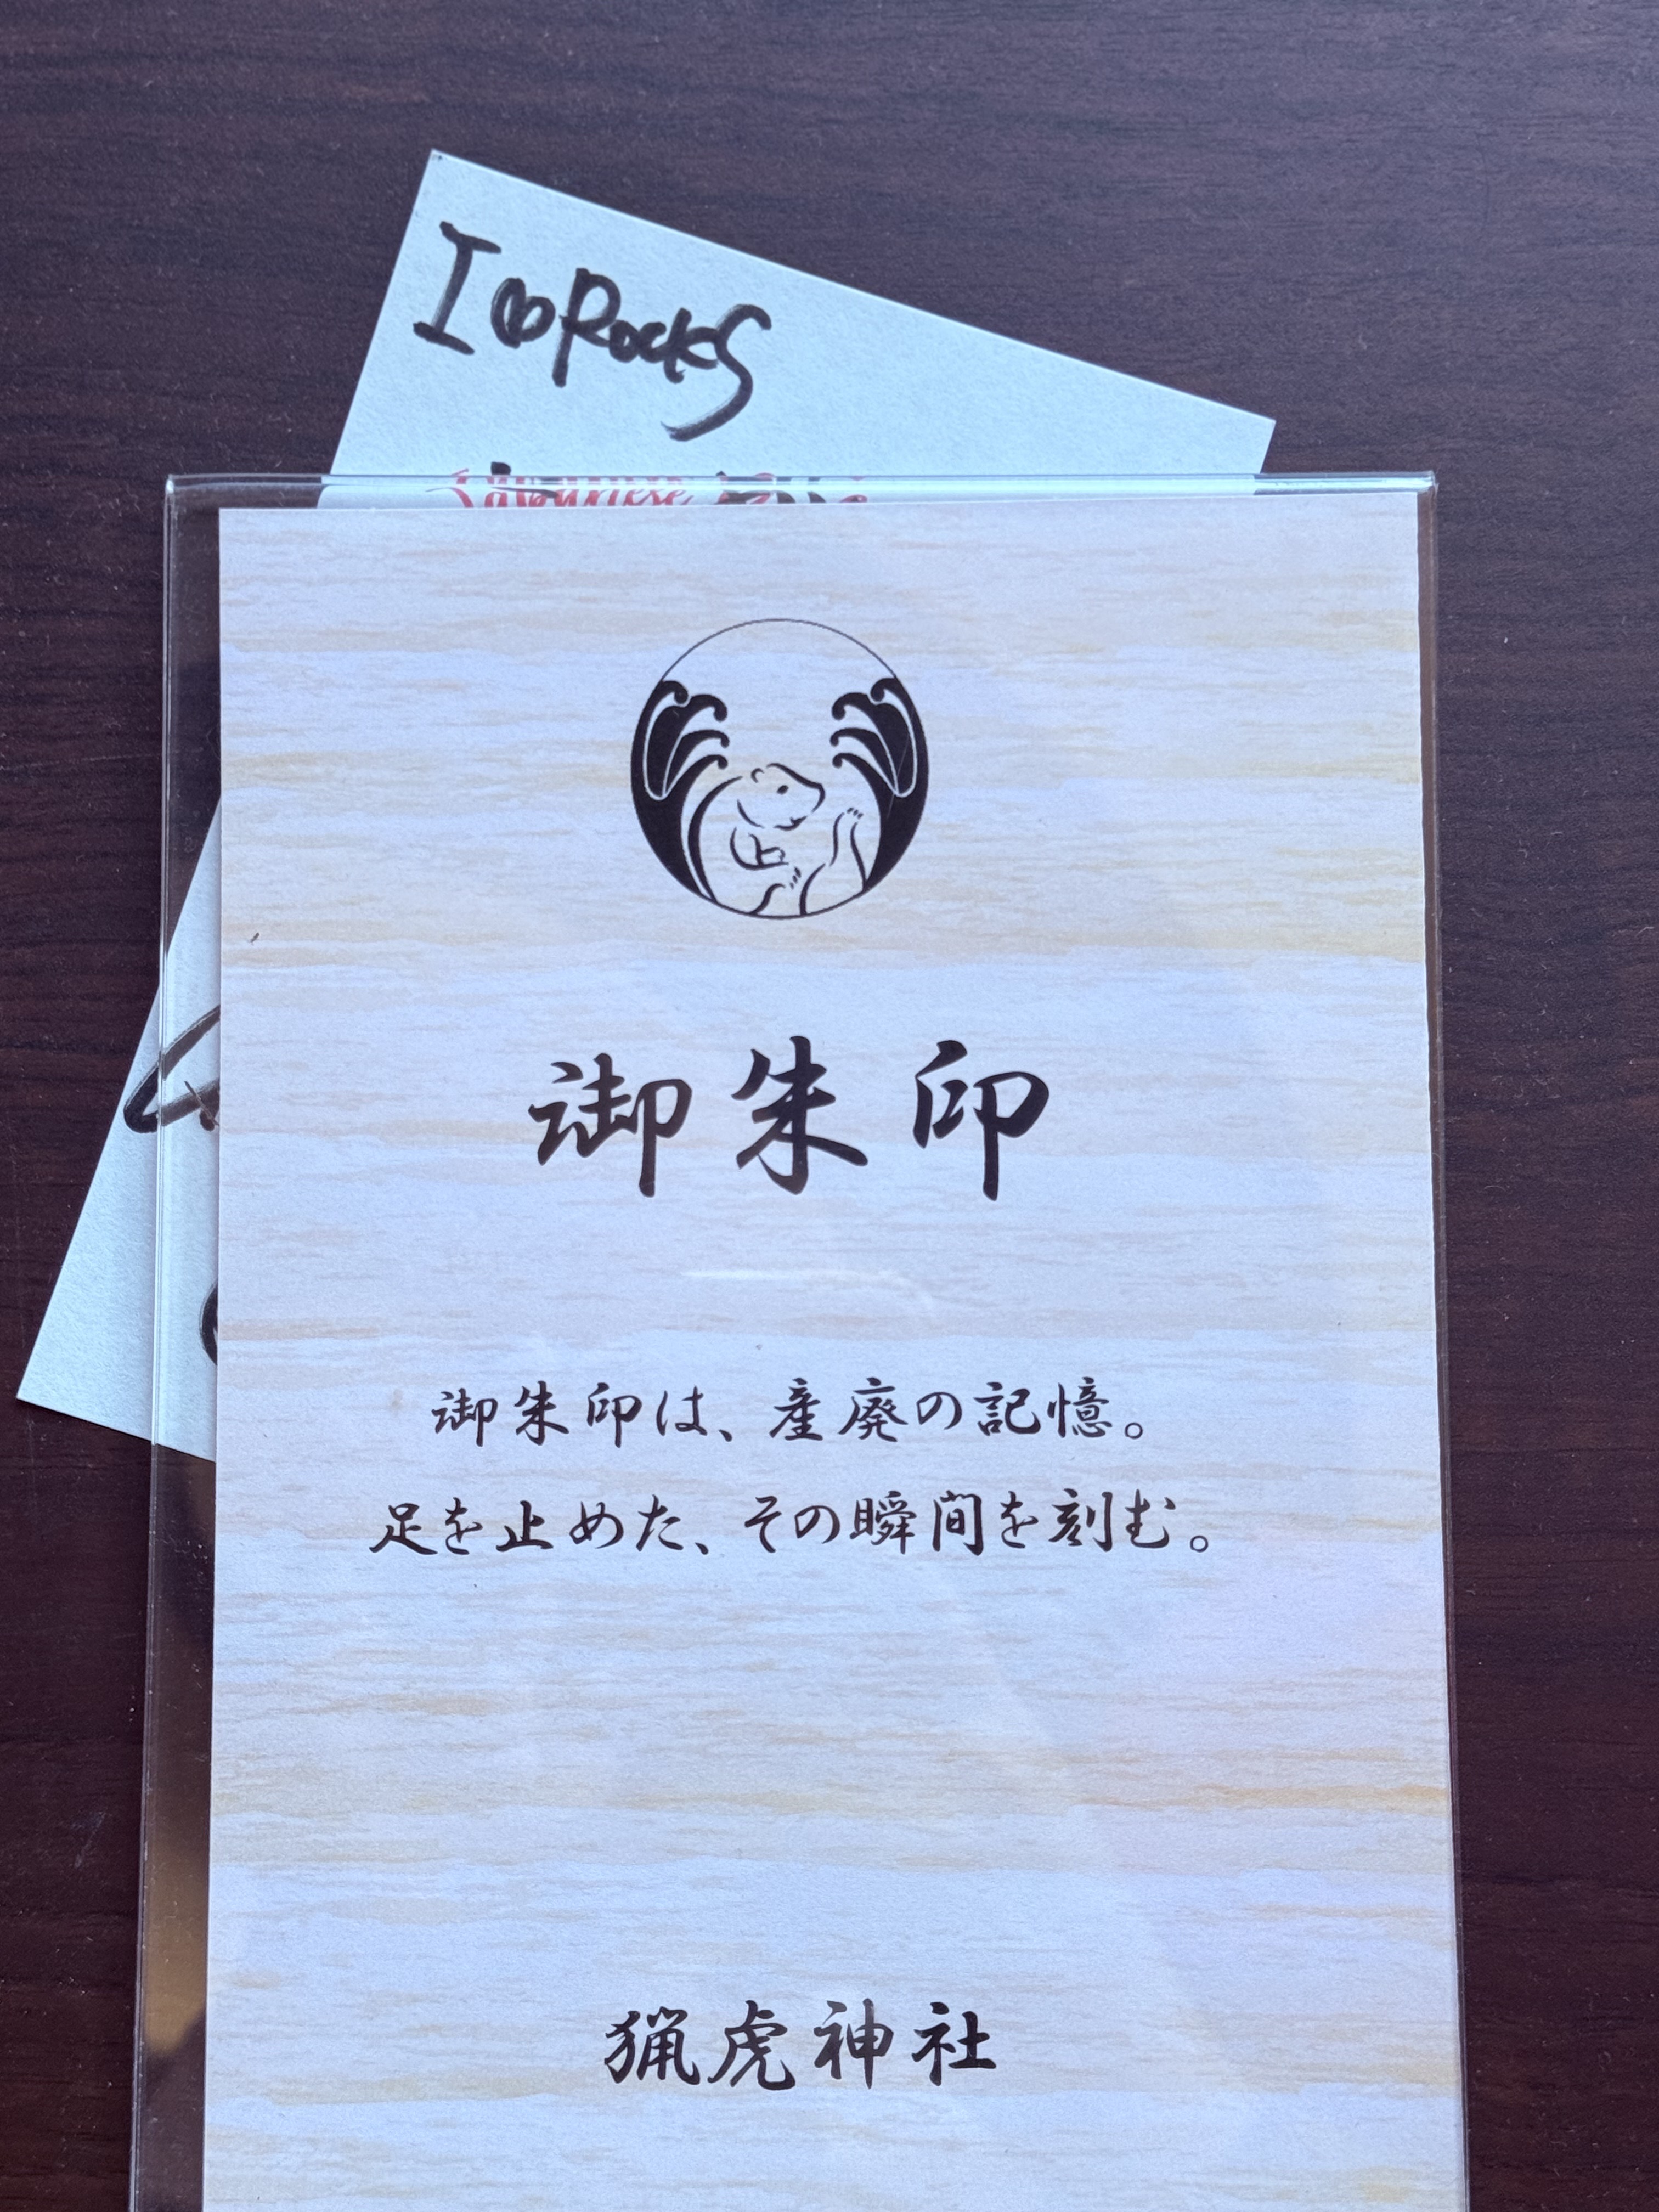 I ♡ Rocks
Japanese
御朱印
御朱印は、産廃の記憶。
足を止めた、その瞬間を刻む。
猟虎神社